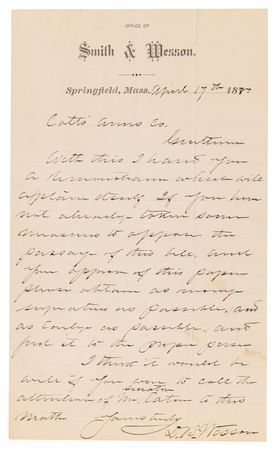 OFFICE OF
Smith & Wesson.
Springfield, Mass. April 17th 188
Colts Arms Co.
Gentlemen
With this I hand you
a remonstrance which will
explain itself. If you have
not already taken some
measures to oppose the
passage of this bill, and
you approve of this paper
please obtain as many
signatures as possible, and
as early as possible, and
put it to the proper
I think it would be
well if you were to call the
attention of Senator Mr. Eaton to this
matter Yours truly
D. B. Wesson